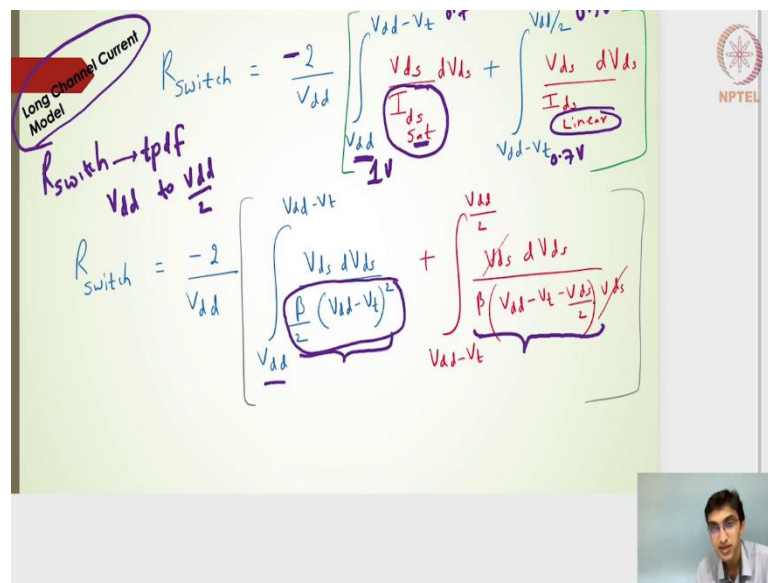 Long Channel Current
Model
R_switch = -2/V_dd [ ∫_{V_dd}^{V_dd-V_t} V_ds dV_ds / I_ds sat + ∫_{V_dd-V_t}^{V_dd/2} V_ds dV_ds / I_ds Linear ]
1V 0.7V
NPTEL
R_switch → tpdf
V_dd to V_dd/2
R_switch = -2/V_dd [ ∫_{V_dd}^{V_dd-V_t} V_ds dV_ds / (β/2 (V_dd-V_t)^2) + ∫_{V_dd-V_t}^{V_dd/2} V_ds dV_ds / (β (V_dd-V_t-V_ds/2) V_ds) ]